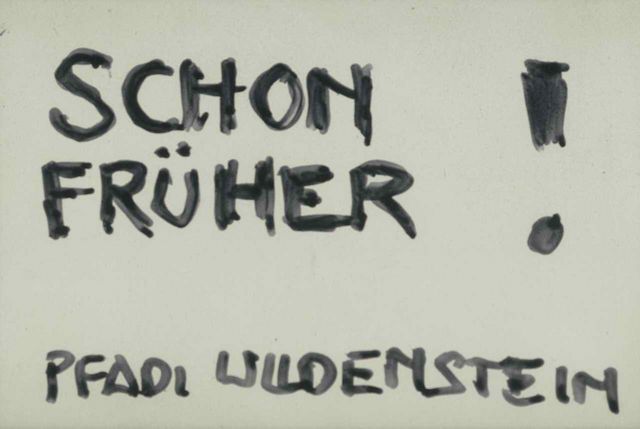 SCHON !
FRÜHER
PFADI WILDENSTEIN